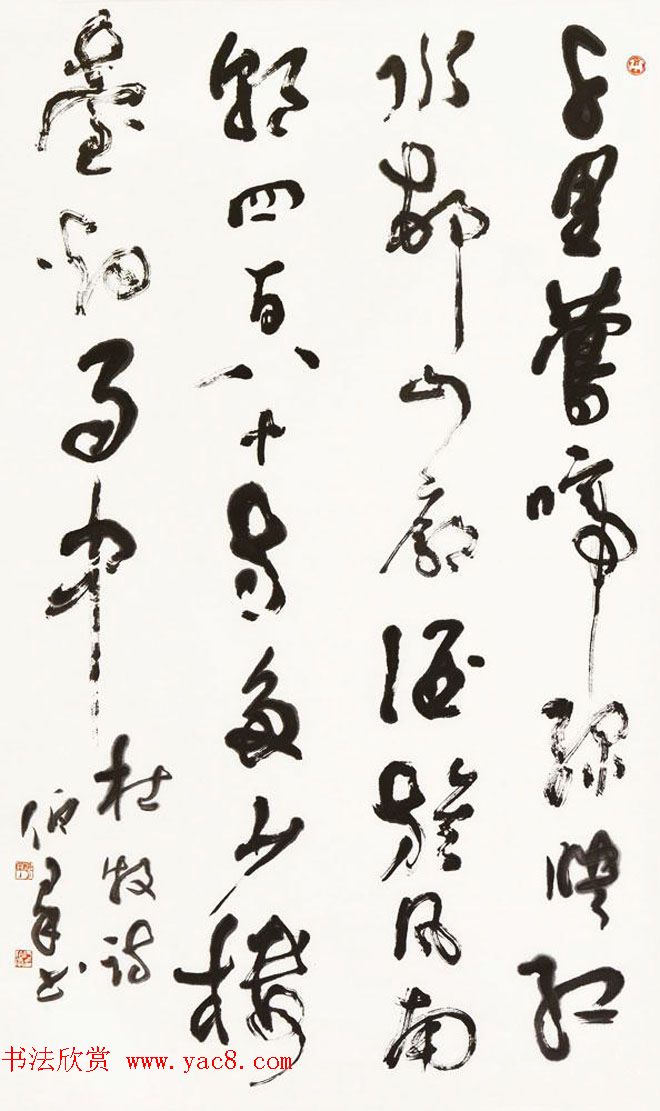 千里鶯啼綠映紅
水邨山郭酒旗風南
朝四百八十寺多少樓
臺烟雨中
杜牧詩
书
书法欣赏 www.yac8.com